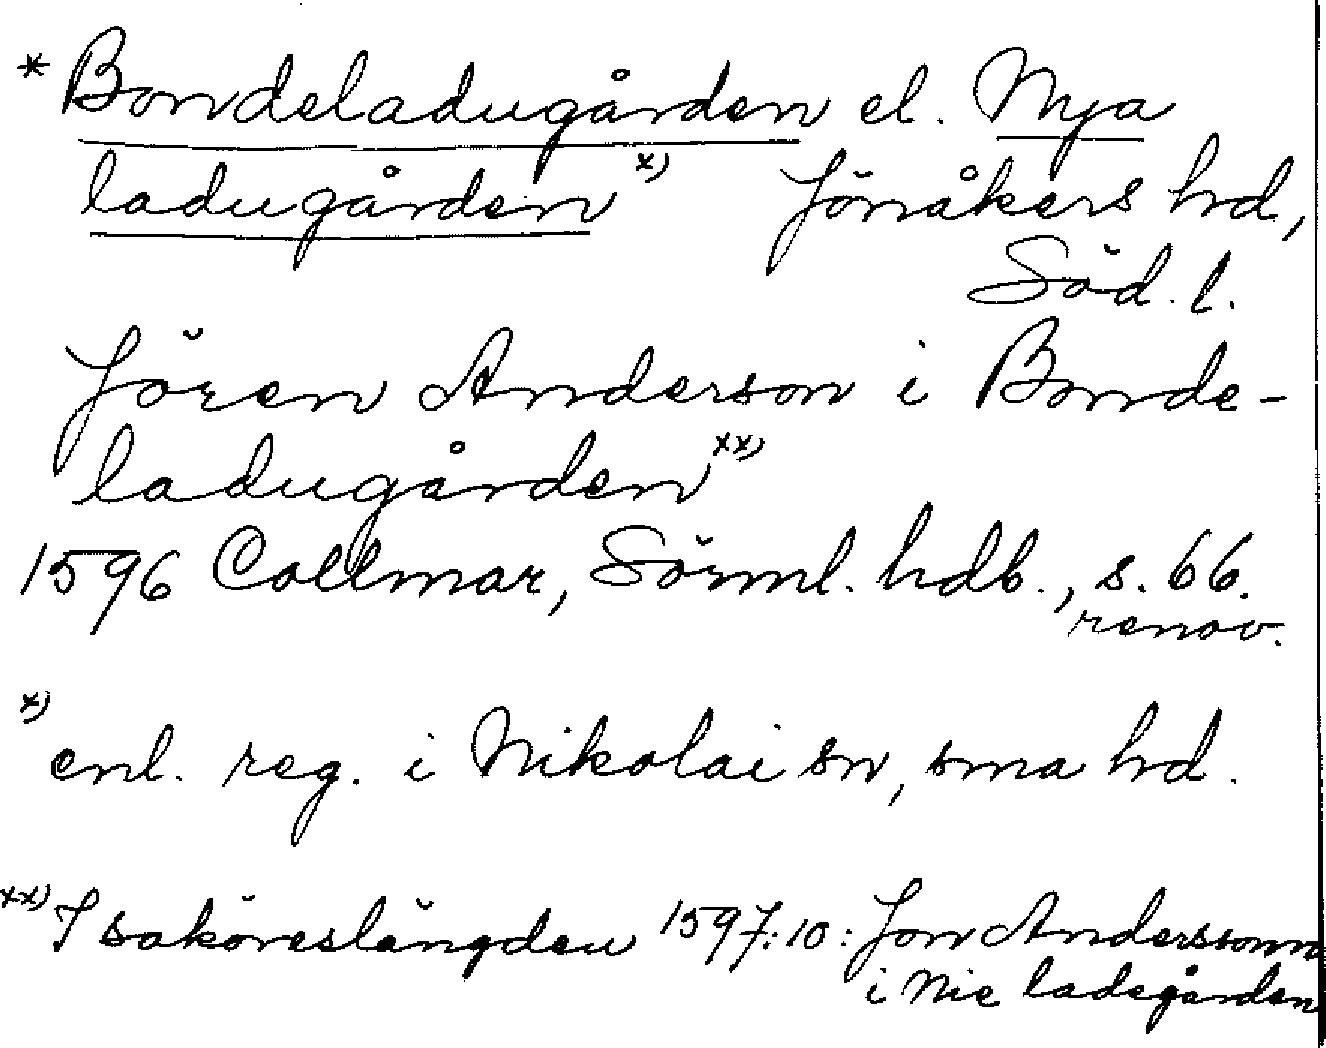 * Bondeladugården el. Nya
ladugården x) Jönåkers hd,
Söd. l.
Jören Anderson i Bonde-
ladugården xx)
1596 Collmar, Sörml. hdb., s. 66.
renov.
x) enl. reg. i Nikolai sn, sma hd.
xx) I saköreslängden 1597:10: Jon Anderssonn
i Nie ladegården